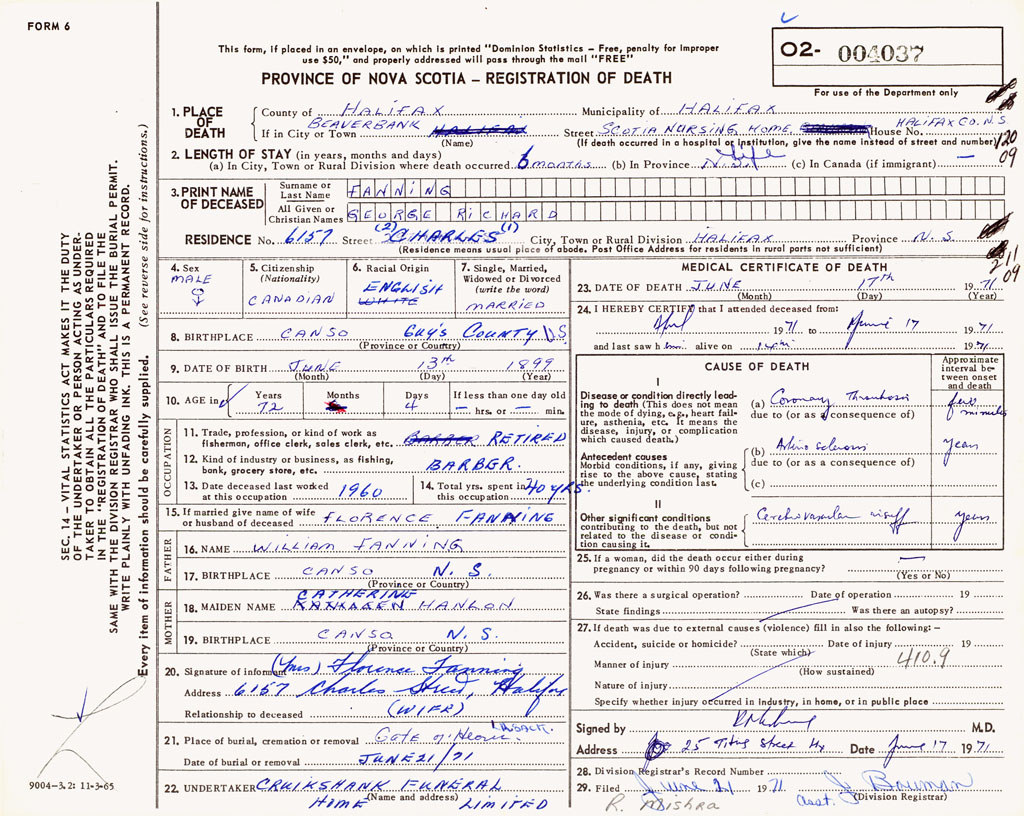 FORM 6
This form, if placed in an envelope, on which is printed "Dominion Statistics – Free, penalty for improper
use $50," and properly addressed will pass through the mail "FREE"
PROVINCE OF NOVA SCOTIA – REGISTRATION OF DEATH
02- 004037
For use of the Department only
SEC. 14 – VITAL STATISTICS ACT MAKES IT THE DUTY
OF THE UNDERTAKER OR PERSON ACTING AS UNDER-
TAKER TO OBTAIN ALL THE PARTICULARS REQUIRED
IN THE "REGISTRATION OF DEATH" AND TO FILE THE
SAME WITH THE DIVISION REGISTRAR WHO SHALL ISSUE THE BURIAL PERMIT.
WRITE PLAINLY WITH UNFADING INK. THIS IS A PERMANENT RECORD.
Every item of information should be carefully supplied. (See reverse side for instructions.)
9004-3.2: 11-3-65
1. PLACE OF DEATH
County of HALIFAX Municipality of HALIFAX
BEAVERBANK HALIFAX CO. N.S.
If in City or Town HALIFAX Street SCOTIA NURSING HOME House No.
(Name) (If death occurred in a hospital or institution, give the name instead of street and number)
120
09
2. LENGTH OF STAY (in years, months and days)
(a) In City, Town or Rural Division where death occurred 6 months (b) In Province Life (c) In Canada (if immigrant) —
3. PRINT NAME OF DECEASED
Surname or Last Name FANNING
All Given or Christian Names GEORGE RICHARD
(2) (1)
RESIDENCE No. 6157 Street CHARLES City, Town or Rural Division HALIFAX Province N.S.
(Residence means usual place of abode. Post Office Address for residents in rural parts not sufficient)
211
09
4. Sex
MALE
5. Citizenship
(Nationality)
CANADIAN
6. Racial Origin
ENGLISH
WHITE
7. Single, Married,
Widowed or Divorced
(write the word)
MARRIED
8. BIRTHPLACE CANSO Guy's COUNTY N.S.
(Province or Country)
9. DATE OF BIRTH JUNE 13th 1899
(Month) (Day) (Year)
10. AGE in Years Months Days If less than one day old
72 4 – hrs. or – min.
OCCUPATION
11. Trade, profession, or kind of work as
fisherman, office clerk, sales clerk, etc. BARBER RETIRED
12. Kind of industry or business, as fishing,
bank, grocery store, etc. BARBER.
13. Date deceased last worked
at this occupation 1960
14. Total yrs. spent in
this occupation 40 YRS.
15. If married give name of wife
or husband of deceased FLORENCE FANNING
FATHER
16. NAME WILLIAM FANNING
17. BIRTHPLACE CANSO N.S.
(Province or Country)
MOTHER
CATHERINE
18. MAIDEN NAME HANLON
19. BIRTHPLACE CANSO N.S.
(Province or Country)
20. Signature of informant (Mrs) Florence Fanning
Address 6157 Charles Street, Halifax
Relationship to deceased (WIFE)
21. Place of burial, cremation or removal Gate of Heaven SACK.
Date of burial or removal JUNE 21/71
22. UNDERTAKER CRUIKSHANK FUNERAL
(Name and address)
HOME LIMITED
MEDICAL CERTIFICATE OF DEATH
23. DATE OF DEATH JUNE 17th 1971
(Month) (Day) (Year)
24. I HEREBY CERTIFY that I attended deceased from:
April 1971 to June 17 1971
and last saw him alive on 1971
CAUSE OF DEATH
Approximate
interval be-
tween onset
and death
I
Disease or condition directly lead-
ing to death (This does not mean
the mode of dying, e.g., heart fail-
ure, asthenia, etc. It means the
disease, injury, or complication
which caused death.)
(a) Coronary Thrombosis few minutes
due to (or as a consequence of)
Antecedent causes
Morbid conditions, if any, giving
rise to the above cause, stating
the underlying condition last.
(b) Arteriosclerosis years
due to (or as a consequence of)
(c)
II
Other significant conditions
contributing to the death, but not
related to the disease or condi-
tion causing it.
Cerebrovascular insuff years
25. If a woman, did the death occur either during
pregnancy or within 90 days following pregnancy? —
(Yes or No)
26. Was there a surgical operation? Date of operation 19
State findings Was there an autopsy?
27. If death was due to external causes (violence) fill in also the following: –
Accident, suicide or homicide? Date of injury 19
(State which)
410.9
Manner of injury
(How sustained)
Nature of injury
Specify whether injury occurred in industry, in home, or in public place
Signed by M.D.
Address 25 Titus Street Hx Date June 17 1971
28. Division Registrar's Record Number
29. Filed June 21 1971 asst. J Bowman
(Division Registrar)
R. Mishra